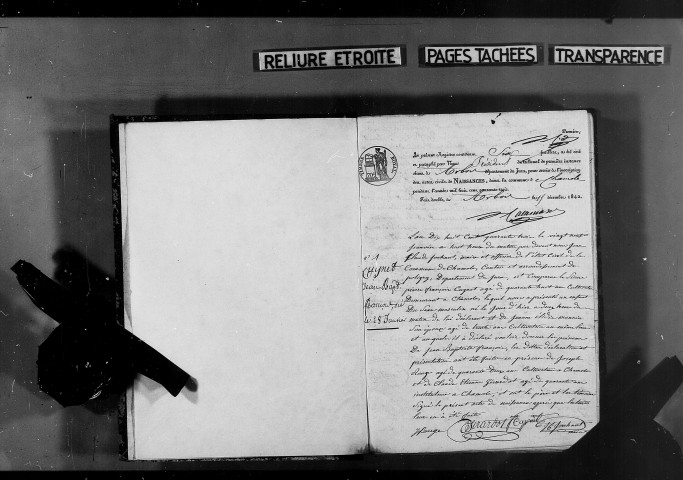 RELIURE ETROITE
PAGES TACHEES
TRANSPARENCE
Le présent Registre contenant Six feuillets, a été coté
et paraphé par Nous Président du Tribunal de première instance
séant à Arbois département du Jura, pour servir à l'inscription
des actes civils de NAISSANCES, dans la commune de Chamole
pendant l'année mil huit cent quarante trois
Fait double, à Arbois décembre 1842.
L'an Dix huit Cent quarante trois le vingt neuf
janvier a huit heures du matin par devant nous
maire et officier de l'état Civil de la
Commune de Chamole, Canton et arrondissement de
poligny Département du Jura, est Comparu le Sieur
pierre françois Cuynet agé de quarante huit ans Cultivateur
Demeurant a Chamole lequel nous a présenté un enfant
Du Sexe masculin né le jour d'hier a heures du
matin de lui déclarant et de
Son épouse agée de trente ans Cultivatrice au même lieu
et auquel il a déclaré vouloir donner les prénoms
De Jean Baptiste françois, les dittes déclaration et
présentation ont été faites en présence de Joseph
agé de quarante ans Cultivateur a Chamole
et de Claude Girardot agé de quarante ans
instituteur a Chamole, et ont le père et les témoins
Signé le présent acte de naissance après que lecture
leur en a été faite
Girardot Cuynet
n° 1
Cuynet
Jean Bapt.
françois
le 28 Janvier